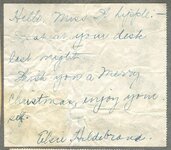 Hello, Miss A. Lickle. —
I sat at your desk
last night.
Wish you a Merry
Christmas, enjoy your
self.
Hildebrand